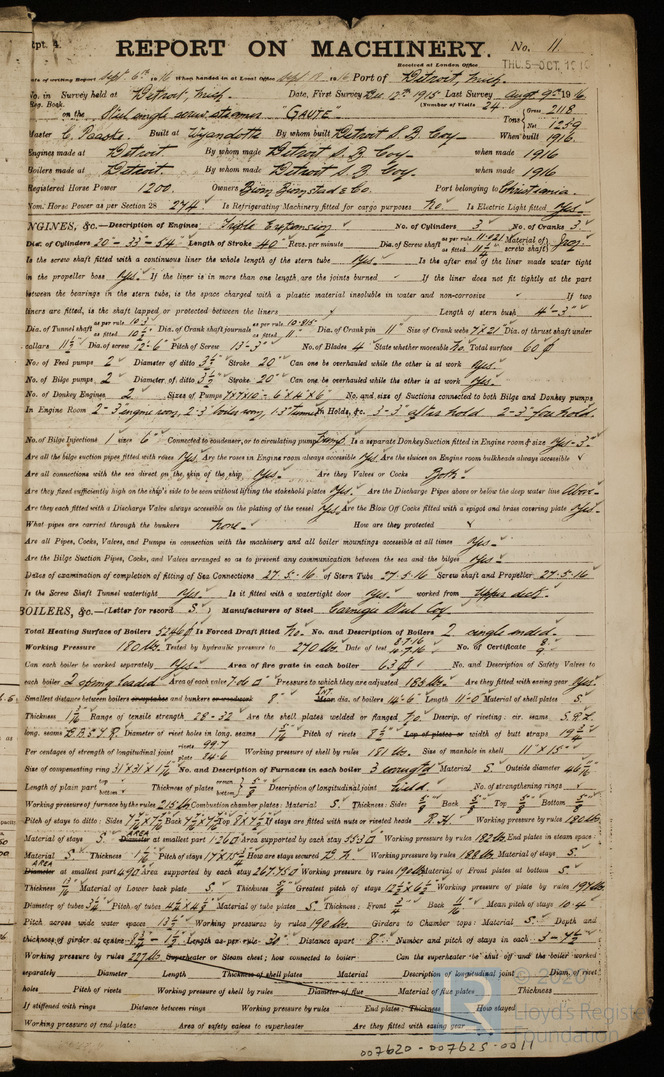 Rpt. 4.
REPORT ON MACHINERY. No. 11
Received at London Office THU. 5 OCT. 1916
Date of writing Report Sept 6th 1916 When handed in at Local Office Sept 19 1916 Port of Detroit, Mich.
No. in Survey held at Detroit, Mich. Date, First Survey Dec. 12th 1915 Last Survey Aug. 9th 1916
Reg. Book. (Number of Visits 24
on the Steel single screw steamer "GAUTE" Tons Gross 2118 Net 1259
Master C. Built at Wyandotte By whom built Detroit S. B. Coy When built 1916
Engines made at Detroit By whom made Detroit S. B. Coy. when made 1916
Boilers made at Detroit. By whom made Detroit S. B. Coy. when made 1916
Registered Horse Power 1200. Owners & Co. Port belonging to Christiania.
Nom. Horse Power as per Section 28 274 Is Refrigerating Machinery fitted for cargo purposes No. Is Electric Light fitted Yes
ENGINES, &c.—Description of Engines Triple Expansion No. of Cylinders 3 No. of Cranks 3
Dia. of Cylinders 20-33-54 Length of Stroke 40 Revs. per minute Dia. of Screw shaft as per rule as fitted Material of screw shaft Iron
Is the screw shaft fitted with a continuous liner the whole length of the stern tube Yes. Is the after end of the liner made water tight
in the propeller boss Yes. If the liner is in more than one length are the joints burned If the liner does not fit tightly at the part
between the bearings in the stern tube, is the space charged with a plastic material insoluble in water and non-corrosive If two
liners are fitted, is the shaft lapped or protected between the liners Length of stern bush 4'-3"
Dia. of Tunnel shaft as per rule as fitted Dia. of Crank shaft journals as per rule as fitted 11" Dia. of Crank pin 11" Size of Crank webs 7x21 Dia. of thrust shaft under
collars 11½ Dia. of screw 12'-6" Pitch of Screw 13'-3" No. of Blades 4 State whether moveable No. Total surface 60
No. of Feed pumps 2 Diameter of ditto 3½ Stroke 20" Can one be overhauled while the other is at work Yes.
No. of Bilge pumps 2 Diameter of ditto 3½ Stroke 20" Can one be overhauled while the other is at work Yes.
No. of Donkey Engines 2 Sizes of Pumps 7x7x10 - 6x4x6 No. and size of Suctions connected to both Bilge and Donkey pumps
In Engine Room 2-3 engine room, 2-3" boiler room, 1-3" tunnel In Holds, &c. 3-3" after hold 2-3" fore hold.
No. of Bilge Injections 1 sizes 6" Connected to condenser, or to circulating pump Pump Is a separate Donkey Suction fitted in Engine room & size Yes-3"
Are all the bilge suction pipes fitted with roses Yes. Are the roses in Engine room always accessible Yes. Are the sluices on Engine room bulkheads always accessible
Are all connections with the sea direct on the skin of the ship Yes. Are they Valves or Cocks Both.
Are they fixed sufficiently high on the ship's side to be seen without lifting the stokehold plates Yes. Are the Discharge Pipes above or below the deep water line Above
Are they each fitted with a Discharge Valve always accessible on the plating of the vessel Yes. Are the Blow Off Cocks fitted with a spigot and brass covering plate Yes
What pipes are carried through the bunkers None. How are they protected
Are all Pipes, Cocks, Valves, and Pumps in connection with the machinery and all boiler mountings accessible at all times Yes
Are the Bilge Suction Pipes, Cocks, and Valves arranged so as to prevent any communication between the sea and the bilges Yes
Dates of examination of completion of fitting of Sea Connections 27.5.16 of Stern Tube 27.5.16 Screw shaft and Propeller 27.5.16
Is the Screw Shaft Tunnel watertight Yes. Is it fitted with a watertight door Yes. worked from Upper deck.
BOILERS, &c.—(Letter for record S.) Manufacturers of Steel Carnegie Steel Coy.
Total Heating Surface of Boilers 5246 Is Forced Draft fitted No. No. and Description of Boilers 2 single ended.
Working Pressure 180 lbs. Tested by hydraulic pressure to 270 lbs. Date of test No. of Certificate 8. 9
Can each boiler be worked separately Yes. Area of fire grate in each boiler 63 No. and Description of Safety Valves to
each boiler 2 spring loaded Area of each valve 7.06 Pressure to which they are adjusted 185 lbs. Are they fitted with easing gear Yes.
Smallest distance between boilers or uptakes and bunkers or woodwork 8" INT. Mean dia. of boilers 14'-6" Length 11'-0" Material of shell plates S.
Thickness Range of tensile strength 28-32 Are the shell plates welded or flanged No. Descrip. of riveting: cir. seams S.R.L.
long. seams Diameter of rivet holes in long. seams Pitch of rivets 8½ Lap of plates or width of butt straps
Per centages of strength of longitudinal joint rivets 99.7 plate 84.6 Working pressure of shell by rules 181 lbs. Size of manhole in shell 11" x 15"
Size of compensating ring No. and Description of Furnaces in each boiler 3 Material S. Outside diameter
Length of plain part top bottom Thickness of plates crown bottom Description of longitudinal joint Weld. No. of strengthening rings
Working pressure of furnace by the rules 215 lbs Combustion chamber plates: Material S. Thickness: Sides Back Top Bottom
Pitch of stays to ditto: Sides Back Top If stays are fitted with nuts or riveted heads R.H. Working pressure by rules 180 lbs.
Material of stays S. Diameter AREA at smallest part Area supported by each stay Working pressure by rules 182 lbs End plates in steam space:
Material S. Thickness Pitch of stays How are stays secured D.N. Working pressure by rules 188 lbs Material of stays S.
AREA Diameter at smallest part 490 Area supported by each stay 267.750 Working pressure by rules 190 lbs Material of Front plates at bottom S.
Thickness Material of Lower back plate S. Thickness Greatest pitch of stays Working pressure of plate by rules 197 lbs.
Diameter of tubes 3¼ Pitch of tubes 4½x4½ Material of tube plates S. Thickness: Front Back Mean pitch of stays 10.4
Pitch across wide water spaces 13½ Working pressures by rules 190 lbs. Girders to Chamber tops: Material S. Depth and
thickness of girder at centre Length as per rule 30" Distance apart 8" Number and pitch of stays in each 3-7½
Working pressure by rules 227 lbs. Superheater or Steam chest; how connected to boiler Can the superheater be shut off and the boiler worked
separately Diameter Length Thickness of shell plates Material Description of longitudinal joint Diam. of rivet
holes Pitch of rivets Working pressure of shell by rules Diameter of flue Material of flue plates Thickness
If stiffened with rings Distance between rings Working pressure by rules End plates: Thickness How stayed
Working pressure of end plates Area of safety valves to superheater Are they fitted with easing gear
© 2020
Lloyd's Register
Foundation
007620-007625-0011